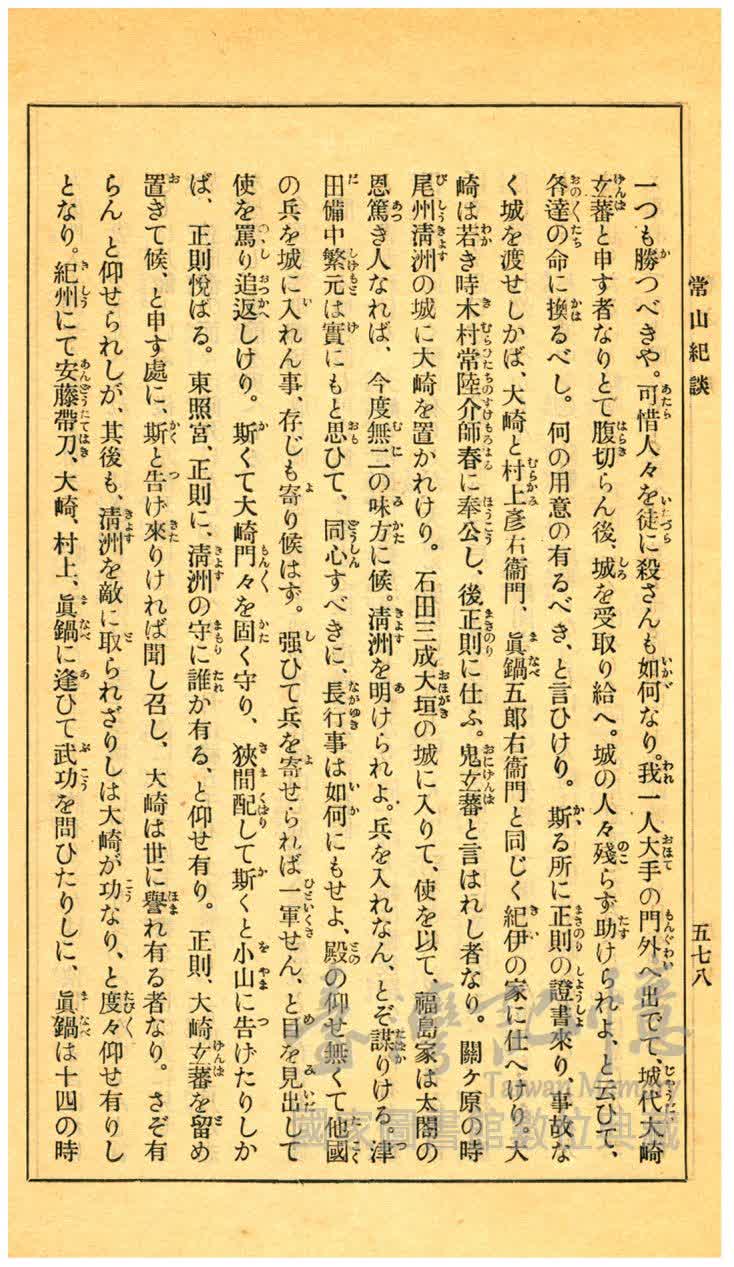 常山紀談
五七八
一つも勝つべきや。可惜人々を徒に殺さんも如何なり。我一人大手の門外へ出でて、城代大崎
玄蕃と申す者なりとて腹切らん後、城を受取り給へ。城の人々殘らず助けられよ、と云ひて、
各達の命に換るべし。何の用意の有るべき、と言ひけり。斯る所に正則の證書來り、事故な
く城を渡せしかば、大崎と村上彥右衞門、眞鍋五郞右衞門と同じく紀伊の家に仕へけり。大
崎は若き時木村常陸介師春に奉公し、後正則に仕ふ。鬼玄蕃と言はれし者なり。關ヶ原の時
尾州淸洲の城に大崎を置かれけり。石田三成大垣の城に入りて、使を以て、福島家は太閤の
恩篤き人なれば、今度無二の味方に候。淸洲を明けられよ。兵を入れなん、とぞ謀りける。津
田備中繁元は實にもと思ひて、同心すべきに、長行事は如何にもせよ、殿の仰せ無くて他國
の兵を城に入れん事、存じも寄り候はず。强ひて兵を寄せられば一軍せん、と目を見出して
使を罵り追返しけり。斯くて大崎門々を固く守り、狹間配して斯くと小山に告げたりしか
ば、正則悅ばる。東照宮、正則に、淸洲の守に誰か有る、と仰せ有り。正則、大崎玄蕃を留め
置きて候、と申す處に、斯と告げ來りければ聞し召し、大崎は世に譽れ有る者なり。さぞ有
らん と仰せられしが、其後も、淸洲を敵に取られざりしは大崎が功なり、と度々仰せ有りし
となり。紀州にて安藤帶刀、大崎、村上、眞鍋に逢ひて武功を問ひたりしに、眞鍋は十四の時
臺灣記憶
Taiwan Memory
國家圖書館數位典藏